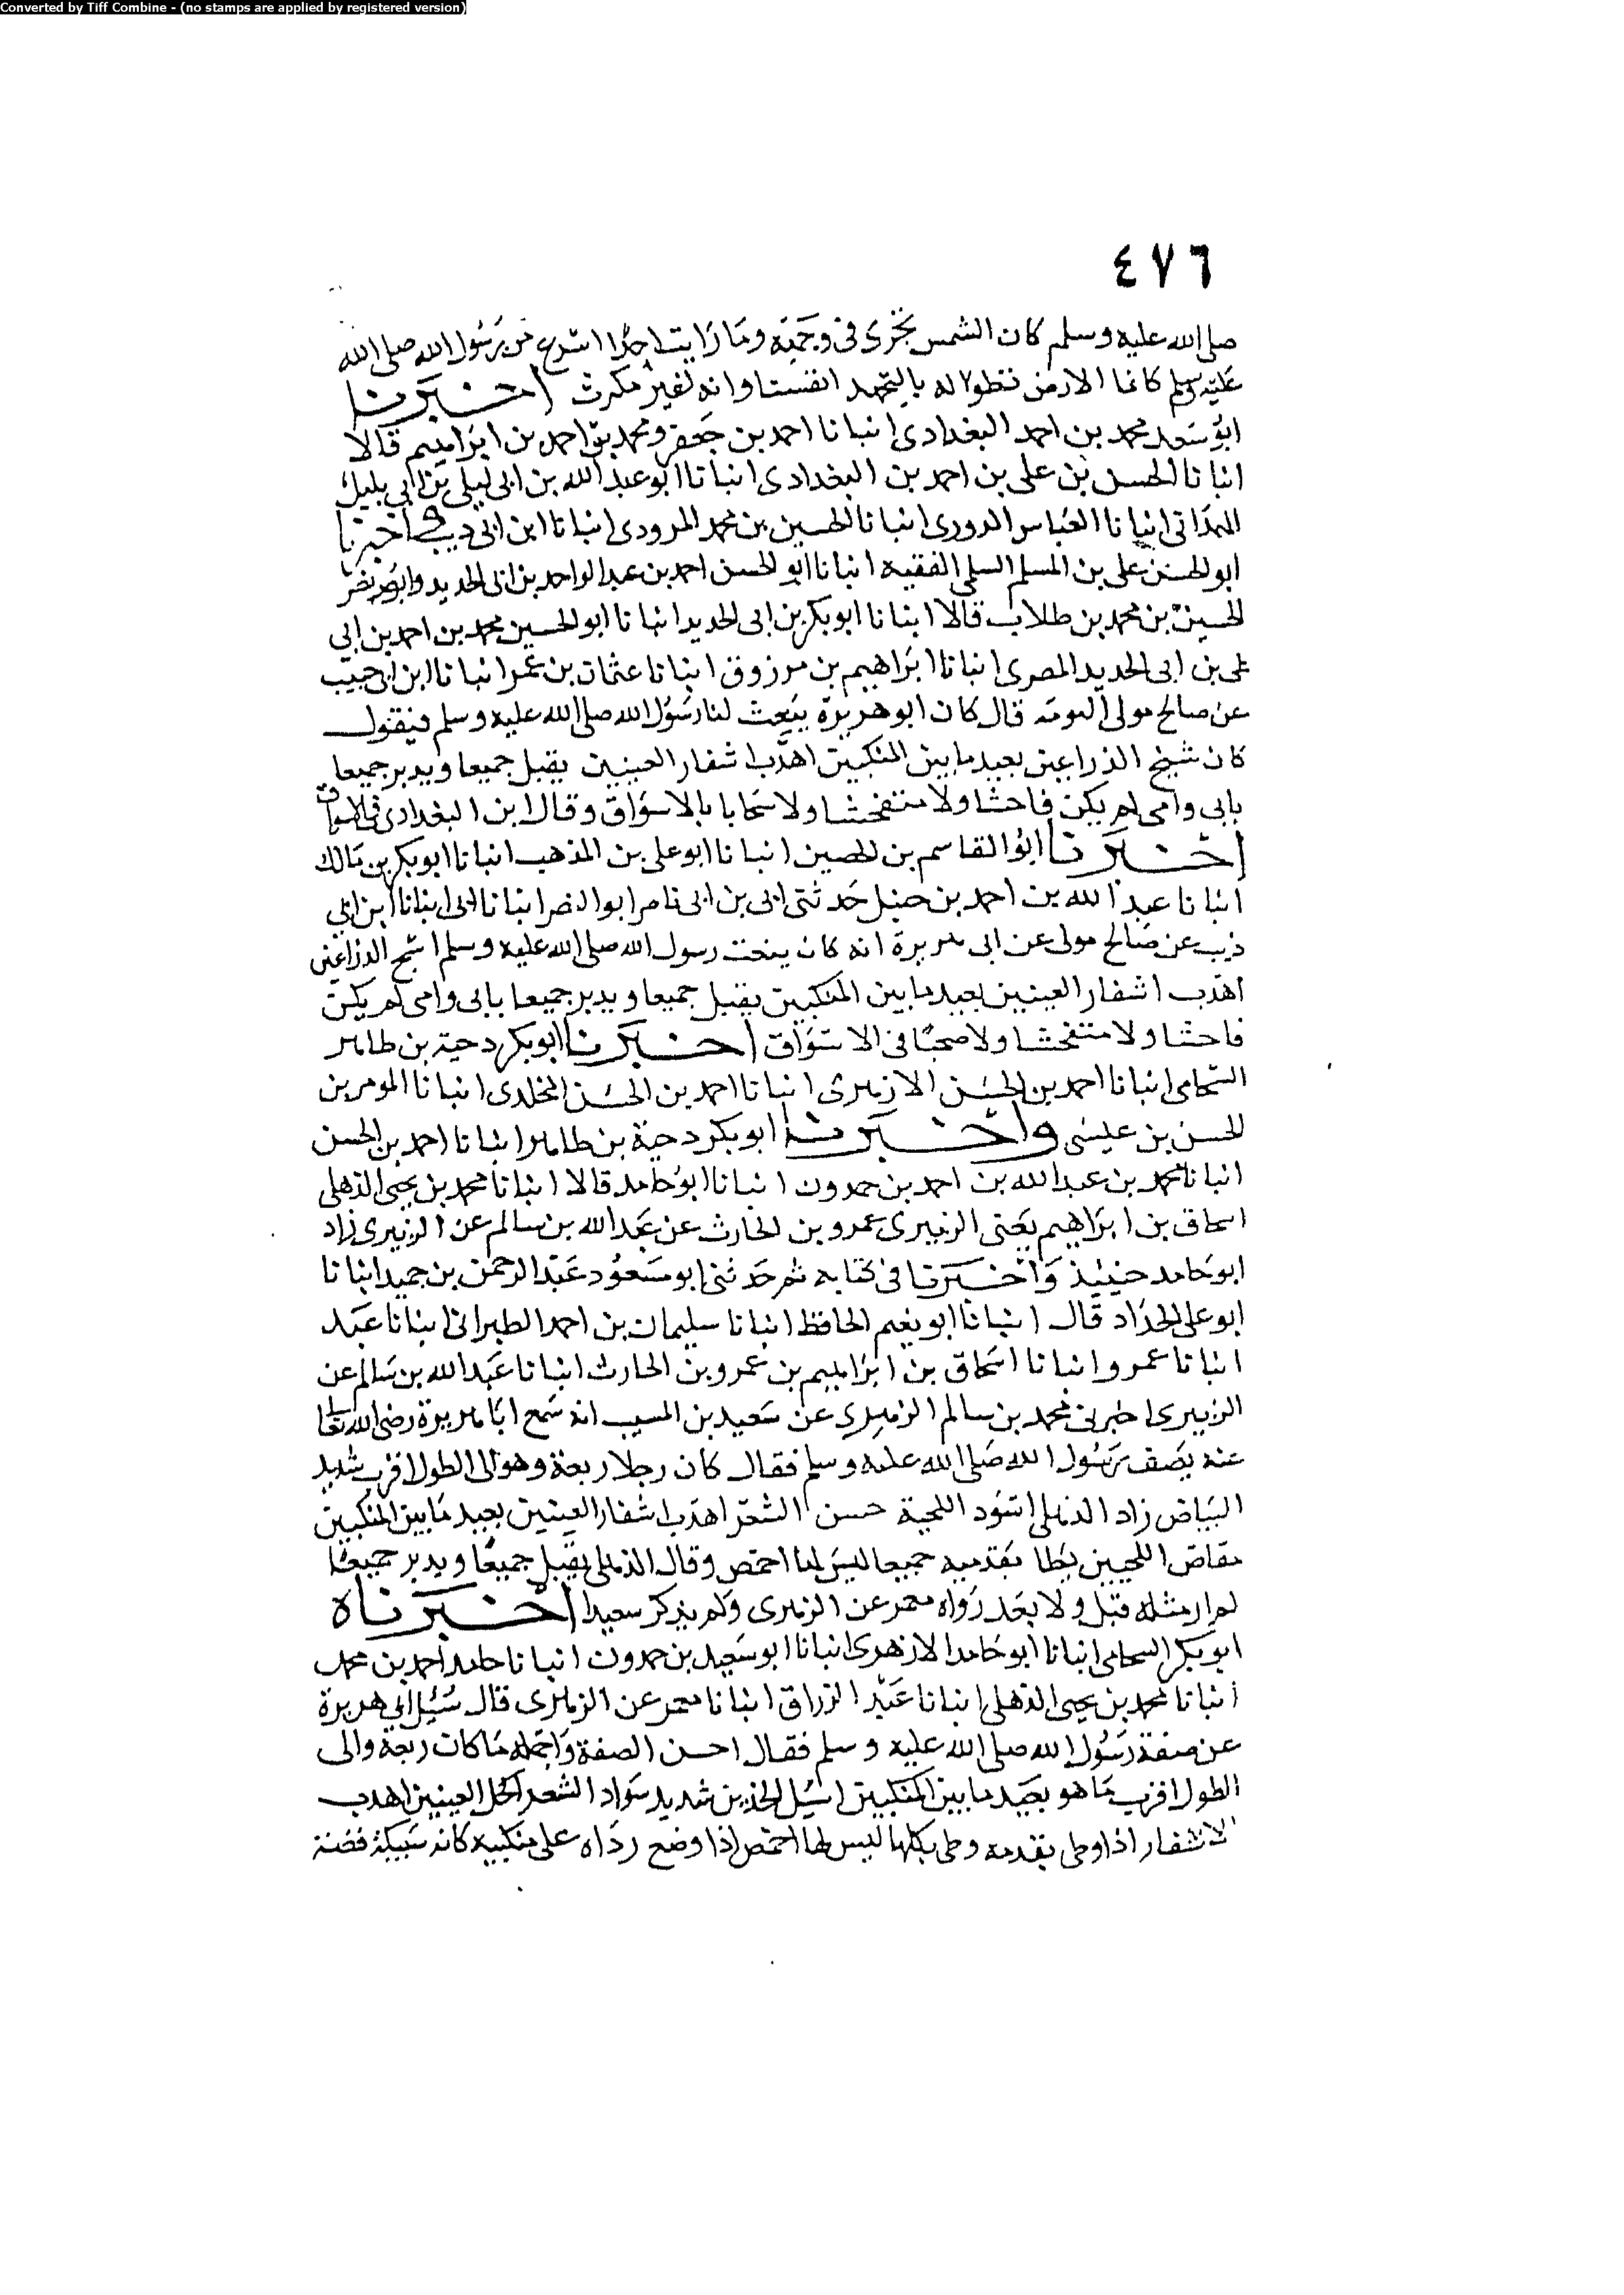 Converted by Tiff Combine - (no stamps are applied by registered version)
٤٧٦
صلى الله عليه وسلم كان الشمس تجرى فى وجهه وما رايت احدا اسرع من رسول الله صلى الله
عليه وسلم كانما الارض تطوا له انفسنا وانه لغير مكرث اخبرنا
ابو سعد محمد بن احمد البغدادى انبانا احمد بن جعفر ومحمد بن احمد بن ابراهيم قالا
انبانا الحسن بن على بن احمد بن البغدادى انبانا ابو عبد الله بن ابى ليلى بن ابى
انبانا العباس الدورى انبانا الحسين بن محمد المرودى انبانا ابن ابى ذيب اخبرنا
ابو الحسن على بن المسلم السلمى الفقيه انبانا ابو الحسن احمد بن عبد الواحد بن ابى الحديد وابو نصر
الحسين بن محمد بن طلاب قالا انبانا ابو بكر بن ابى الحديد انبانا ابو الحسين محمد بن احمد بن ابى
على بن ابى الحديد المصرى انبانا ابراهيم بن مرزوق انبانا عثمان بن عمر انبانا ابن ابى حبيب
عن صالح مولى التومة قال كان ابو هريرة ينعت لنا رسول الله صلى الله عليه وسلم فيقول
كان شبخ الذراعين بعيد ما بين المنكبين اهدب اشفار العينين يقبل جميعا ويدبر جميعا
بابى وامى لم يكن فاحشا ولا متفحشا ولا سخابا بالاسواق وقال ابن البغدادى فى الاسواق
اخبرنا ابو القاسم بن الحصين انبانا ابو على بن المذهب انبانا ابو بكر بن مالك
انبانا عبد الله بن احمد بن حنبل حدثنى ابى بن ابى نامر ابو النضر انبانا ابى انبانا ابن ابى
ذيب عن صالح مولى عن ابى هريرة انه كان ينعت رسول الله صلى الله عليه وسلم اشبح الذراعين
اهدب اشفار العينين بعيد ما بين المنكبين يقبل جميعا ويدبر جميعا بابى وامى لم يكن
فاحشا ولا متفحشا ولا صخبا فى الاسواق اخبرنا ابو بكر دحية بن طاهر
الشحامى انبانا احمد بن الحسن الازهرى انبانا احمد بن الحسن المخلدى انبانا المومر بن
الحسن بن عيسى واخبرنا ابو بكر دحية بن طاهر انبانا احمد بن الحسن
انبانا محمد بن عبد الله بن احمد بن حمدون انبانا ابو حامد قالا انبانا محمد بن يحيى الذهلى
اسحاق بن ابراهيم يعنى الزبيرى عمرو بن الحارث عن عبد الله بن سالم عن الزبيرى زاد
ابو حامد حنيئذ واخبرنا فى كتابه ثم حدثنى ابو مسعود عبد الرحمن بن حميد انبانا
ابو على الحداد قال انبانا ابو نعيم الحافظ انبانا سليمان بن احمد الطبرانى انبانا عبد
انبانا عمرو انبانا اسحاق بن ابراهيم بن عمرو بن الحارث انبانا عبد الله بن سالم عن
الزبيرى اخبرنى محمد بن سالم الزهرى عن سعيد بن المسيب انه سمع ابا هريرة رضى الله تعالى
عنه يصف رسول الله صلى الله عليه وسلم فقال كان رجلا ربعة وهو الى الطول اقرب شديد
البياض زاد الذهلى اسود اللحية حسن الشعر اهدب اشفار العينين بعيد ما بين المنكبين
مقاض اللحيين يطا بقدميه جميعا ليس لها اخمص وقال الذهلى يقبل جميعا ويدبر جميعا
لم ار مثله قبل ولا بعد رواه معمر عن الزهرى ولم يذكر سعيدا اخبرناه
ابو بكر الشحامى انبانا ابو حامد الازهرى انبانا ابو سعيد بن حمدون انبانا حامد احمد بن محمد
انبانا محمد بن يحيى الذهلى انبانا عبد الرزاق انبانا معمر عن الزهرى قال سئيل ابى هريرة
عن صفة رسول الله صلى الله عليه وسلم فقال احسن الصفة واجمله ما كان ربعة والى
الطول اقرب ما هو بعيد ما بين المنكبين اسيل الخدين شديد سواد الشعر اكحل العينين اهدب
الاشفار اذا وطى بقدمه وطى بكلها ليس لها اخمص اذا وضع رداه على منكبيه كانه سبيكة فضة